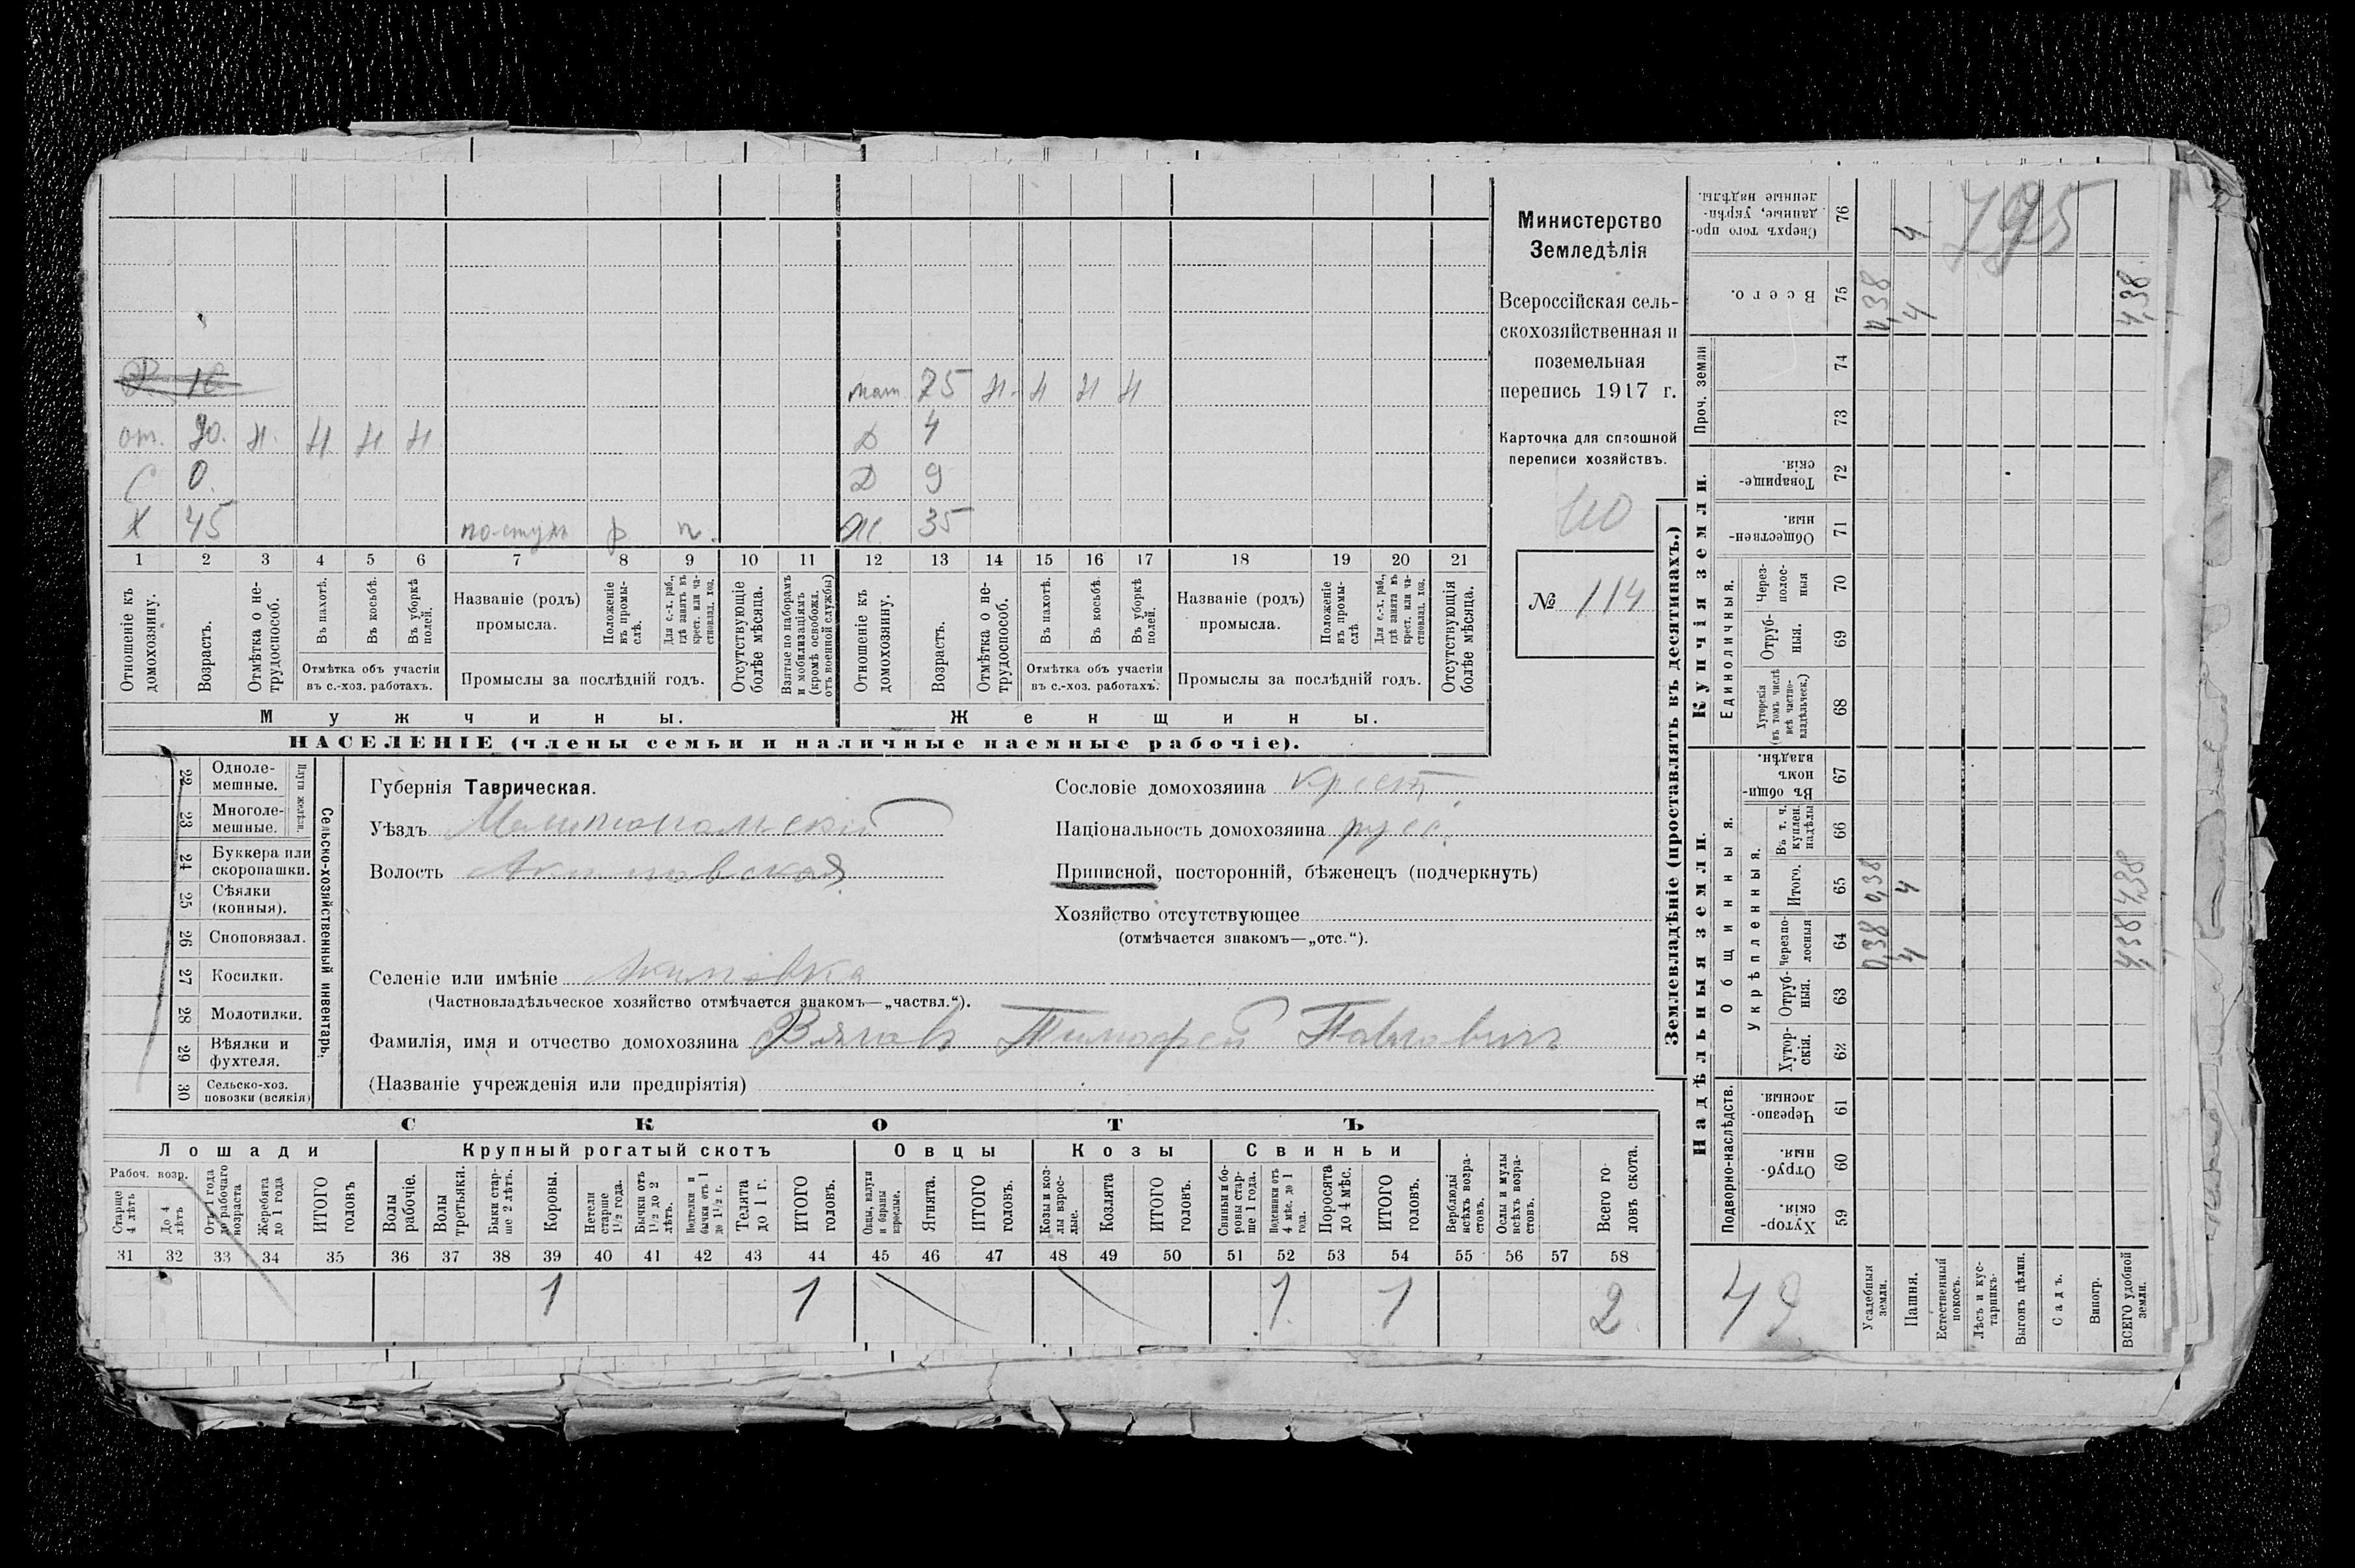 Министерство
Земледѣлія
Всероссійская сель-
скохозяйственная и
поземельная
перепись 1917 г.
Карточка для сплошной
переписи хозяйствъ.
110
№ 114
мат. 75 н. н н н
от. н. н н н
Д 4
С 0.
Д 9
Х 45 р п.
Ж. 35
1 2 3 4 5 6 7 8 9 10 11 12 13 14 15 16 17 18 19 20 21
Отношеніе къ домохозяину.
Возрастъ.
Отмѣтка о не-трудоспособ.
Въ пахотѣ.
Въ косьбѣ.
Въ уборкѣ полей.
Отмѣтка объ участіи
въ с.-хоз. работахъ.
Названіе (родъ)
промысла.
Положеніе въ промы-слѣ.
Для с.-х. раб., гдѣ занятъ въ крест. или ча-стновлад. хоз.
Промыслы за послѣдній годъ.
Отсутствующіе болѣе мѣсяца.
Взятые по наборамъ и мобилизаціямъ (кромѣ освобожд. отъ военной службы)
Отношеніе къ домохозяину.
Возрастъ.
Отмѣтка о не-трудоспособ.
Въ пахотѣ.
Въ косьбѣ.
Въ уборкѣ полей.
Отмѣтка объ участіи
въ с.-хоз. работахъ.
Названіе (родъ)
промысла.
Положеніе въ промы-слѣ
Для с.-х. раб., гдѣ занята въ крест. или ча-стновлад. хоз.
Промыслы за послѣдній годъ.
Отсутствующія болѣе мѣсяца.
Мужчины.
Женщины.
НАСЕЛЕНІЕ (члены семьи и наличные наемные рабочіе).
Сельско-хозяйственный инвентарь.
Плуги желѣзн.
22 Одноле-мешные.
23 Многоле-мешные.
24 Буккера или скоропашки.
25 Сѣялки (конныя).
26 Сноповязал.
27 Косилки.
28 Молотилки.
29 Вѣялки и фухтеля.
30 Сельско-хоз. повозки (всякія)
Губернія Таврическая.
Уѣздъ Мелитопольскій
Волость Акимовская
Селеніе или имѣніе Акимовка
(Частновладѣльческое хозяйство отмѣчается знакомъ—„частвл.“).
Фамилія, имя и отчество домохозяина Тимофей Павловичъ
(Названіе учрежденія или предпріятія)
Сословіе домохозяина крест.
Національность домохозяина русс.
Приписной, посторонній, бѣженецъ (подчеркнуть)
Хозяйство отсутствующее
(отмѣчается знакомъ—„отс.“).
СКОТЪ
Лошади
Крупный рогатый скотъ
Овцы
Козы
Свиньи
Рабоч. возр.
Старше 4 лѣтъ
До 4 лѣтъ
Отъ 1 года до рабочаго возраста
Жеребята до 1 года
ИТОГО головъ
Волы рабочіе.
Волы третьяки.
Быки стар-ше 2 лѣтъ.
Коровы.
Нетели старше 1½ года.
Бычки отъ 1½ до 2 лѣтъ.
бычки отъ 1 до 1½ г.
Телята до 1 г.
ИТОГО головъ.
Овцы, валухи и бараны взрослые.
Ягнята.
ИТОГО головъ.
Козы и коз-лы взрос-лые.
Козлята
ИТОГО головъ.
Свиньи и бо-ровы стар-ше 1 года.
4 мѣс. до 1 года.
Поросята до 4 мѣс.
ИТОГО головъ.
Верблюды всѣхъ возра-стовъ.
Ослы и мулы всѣхъ возра-стовъ.
Всего го-ловъ скота.
31 32 33 34 35 36 37 38 39 40 41 42 43 44 45 46 47 48 49 50 51 52 53 54 55 56 57 58
1 1 1 1 2
Землевладѣніе (проставлять въ десятинахъ.)
Надѣльныя земли.
Купчія земли.
Проч. земли
Подворно-наслѣдств.
Общинныя.
Укрѣпленныя.
Единоличныя.
59 Хутор-скія.
60 Отруб-ныя.
61 Черезпо-лосныя.
62 Хутор-скія.
63 Отруб-ныя.
64 Черезпо-лосныя
65 Итого.
66 Въ т. ч. куплен. надѣлы
67 Въ общи-номъ владѣн.
68 Хуторскія (въ томъ числѣ всѣ частно-владѣльческ.)
69 Отруб-ныя.
70 Через-полос-ныя
71 Обществен-ныя.
72 Товарище-скія.
73
74
75 Всего.
76 Сверхъ того про-данные, укрѣп-ленные надѣлы.
Усадебныя земли.
0,38 0,38 0,38
Пашня.
4 4 4 4
Естественный покосъ.
Лѣсъ и кус-тарникъ.
Выгонъ цѣлин.
Садъ.
Виногр.
ВСЕГО удобной земли.
4,38 4,38 4,38
795
49